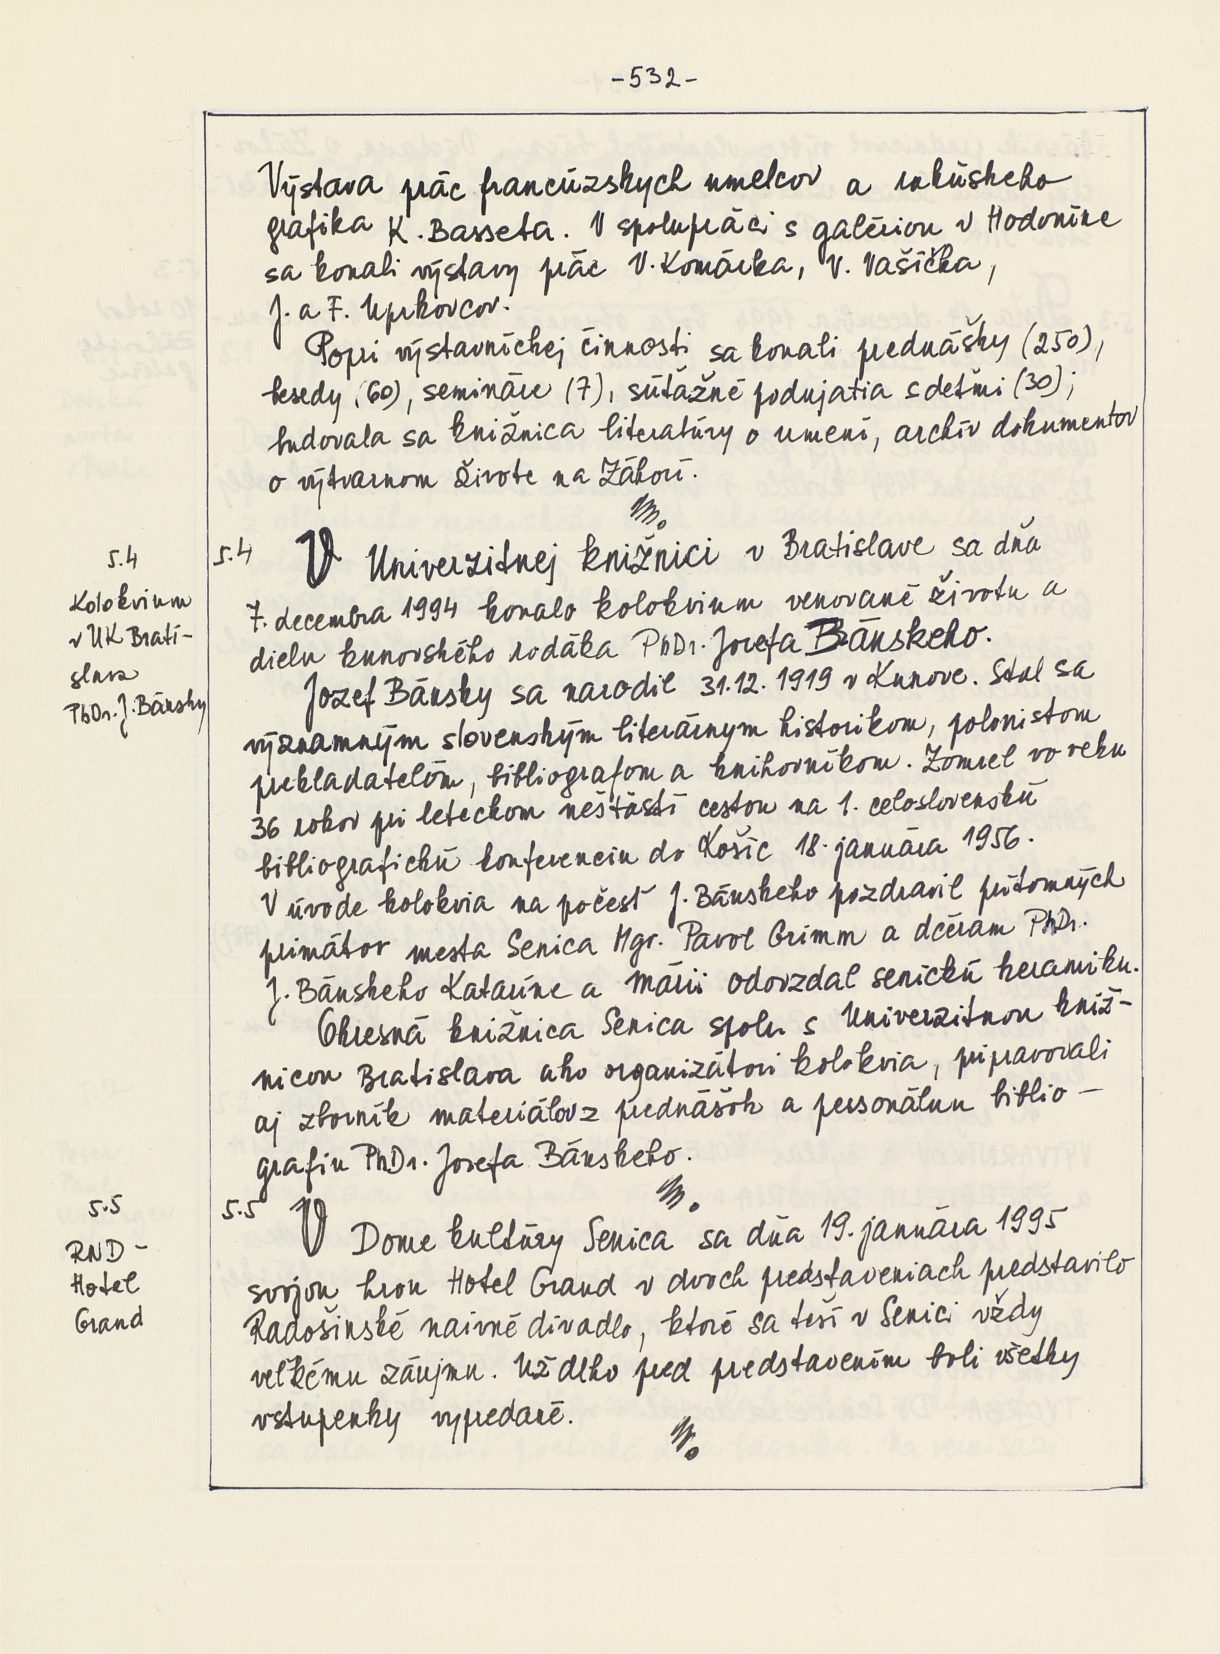 -532-
Výstava prác francúzskych umelcov a rakúskeho
grafika K. Basseta. V spolupráci s galériou v Hodoníne
sa konali výstavy prác V. Komárka, V. Vašíčka,
J. a F. Uprkovcov.
Popri výstavníckej činnosti sa konali prednášky (250),
besedy (60), semináre (7), súťažné podujatia s deťmi (30);
budovala sa knižnica literatúry o umení, archív dokumentov
o výtvarnom živote na Záhorí.
5.4
Kolokvium
v UK Brati-
slava
PhDr. J. Bánsky
5.4 V Univerzitnej knižnici v Bratislave sa dňa
7. decembra 1994 konalo kolokvium venované životu a
dielu kunovského rodáka PhDr. Jozefa Bánskeho.
Jozef Bánsky sa narodil 31.12.1919 v Kunove. Stal sa
významným slovenským literárnym historikom, polonistom
prekladateľom, bibliografom a knihovníkom. Zomrel vo veku
36 rokov pri leteckom nešťastí cestou na 1. celoslovenskú
bibliografickú konferenciu do Košíc 18. januára 1956.
V úvode kolokvia na počesť J. Bánskeho pozdravil prítomných
primátor mesta Senica Mgr. Pavol Grimm a dcéram PhDr.
J. Bánskeho Kataríne a Márii odovzdal senickú keramiku.
Okresná knižnica Senica spolu s Univerzitnou kniž-
nicou Bratislava ako organizátori kolokvia, pripravovali
aj zborník materiálov z prednášok a personálnu biblio-
grafiu PhDr. Jozefa Bánskeho.
5.5
RND -
Hotel
Grand
5.5 V Dome kultúry Senica sa dňa 19. januára 1995
svojou hrou Hotel Grand v dvoch predstaveniach predstavilo
Radošinské naivné divadlo, ktoré sa teší v Senici vždy
veľkému záujmu. Už dlho pred predstavením boli všetky
vstupenky vypredané.